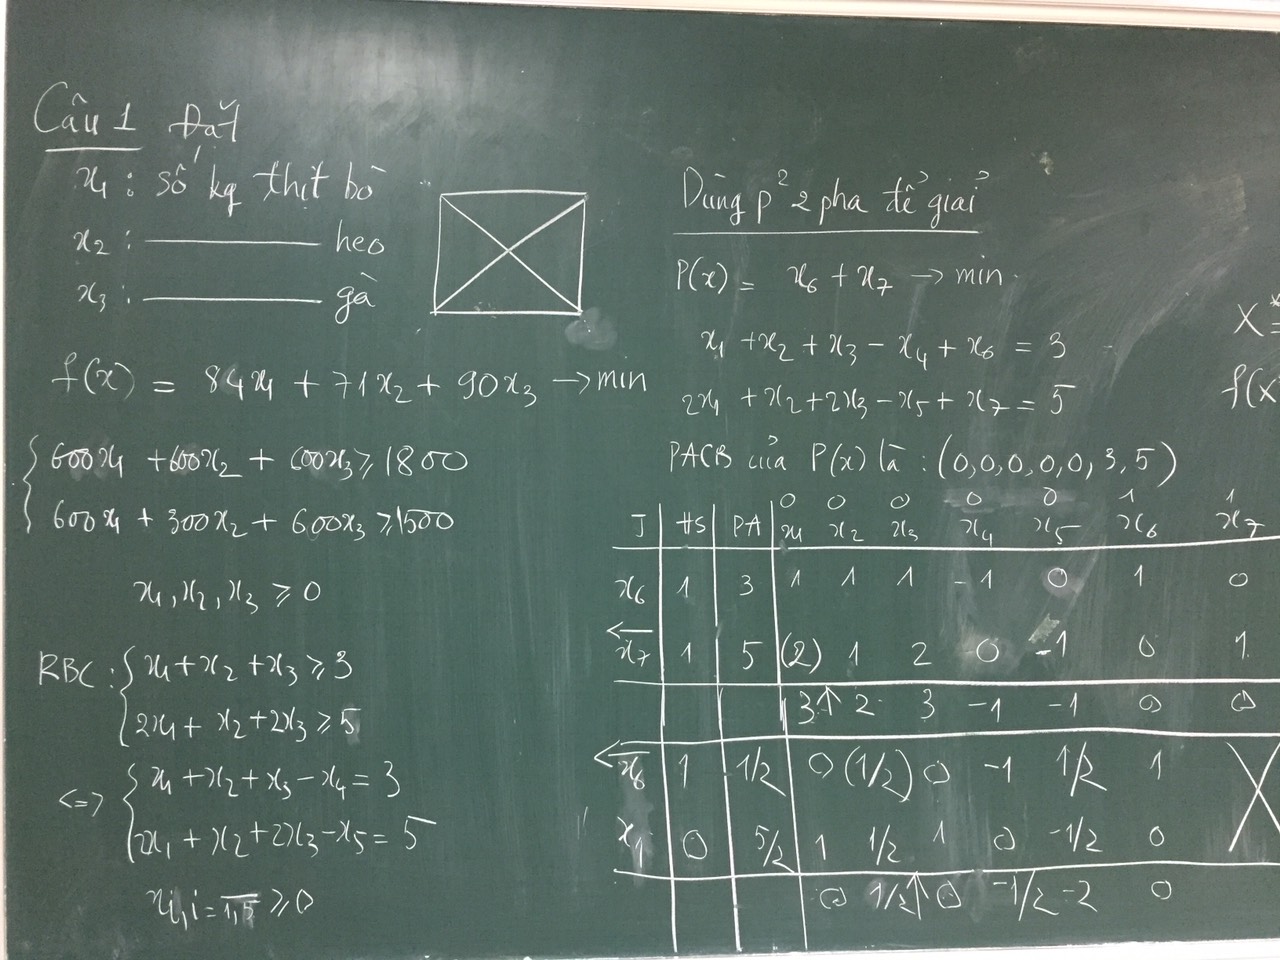 Câu 1 Đặt
x₁ : số kg thịt bò
x₂ : ———— heo
x₃ : ———— gà
f(x) = 84x₁ + 71x₂ + 90x₃ → min
600x₁ + 600x₂ + 600x₃ ≥ 1800
600x₁ + 300x₂ + 600x₃ ≥ 1500
x₁, x₂, x₃ ≥ 0
RBC : { x₁ + x₂ + x₃ ≥ 3
2x₁ + x₂ + 2x₃ ≥ 5
<=> { x₁ + x₂ + x₃ − x₄ = 3
2x₁ + x₂ + 2x₃ − x₅ = 5
xᵢ, i = 1,5 ≥ 0
Dùng p² 2 pha để giải
P(x) = x₆ + x₇ → min
x₁ + x₂ + x₃ − x₄ + x₆ = 3
2x₁ + x₂ + 2x₃ − x₅ + x₇ = 5
PACB của P(x) là : (0,0,0,0,0,3,5)
0 0 0 0 0 1 1
J HS PA x₁ x₂ x₃ x₄ x₅ x₆ x₇
x₆ 1 3 1 1 1 -1 0 1 0
x₇ 1 5 (2) 1 2 0 -1 0 1
3↑ 2 3 -1 -1 0 0
x₆ 1 1/2 0 (1/2) 0 -1 1/2 1
x₁ 0 5/2 1 1/2 1 0 -1/2 0
0 1/2↑ 0 -1/2 -2 0
X* =
f(x